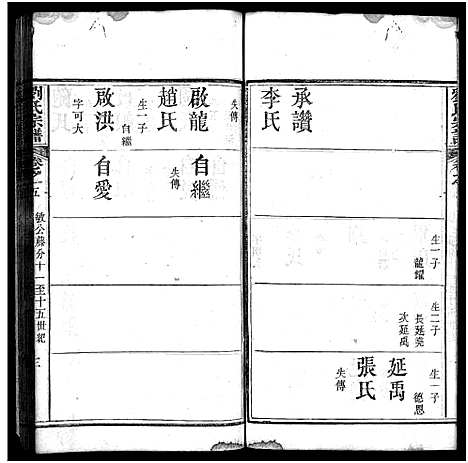 承讚
李氏
失傳
生一子
生二子
長延堯
次延禹
生一子
德恩
延禹
張氏
失傳
啟龍
趙氏
生一子
自繼
啟洪
字可大
自繼
失傳
自愛
劉氏宗譜
卷之十五
敏公藤分十一至十五世紀
三